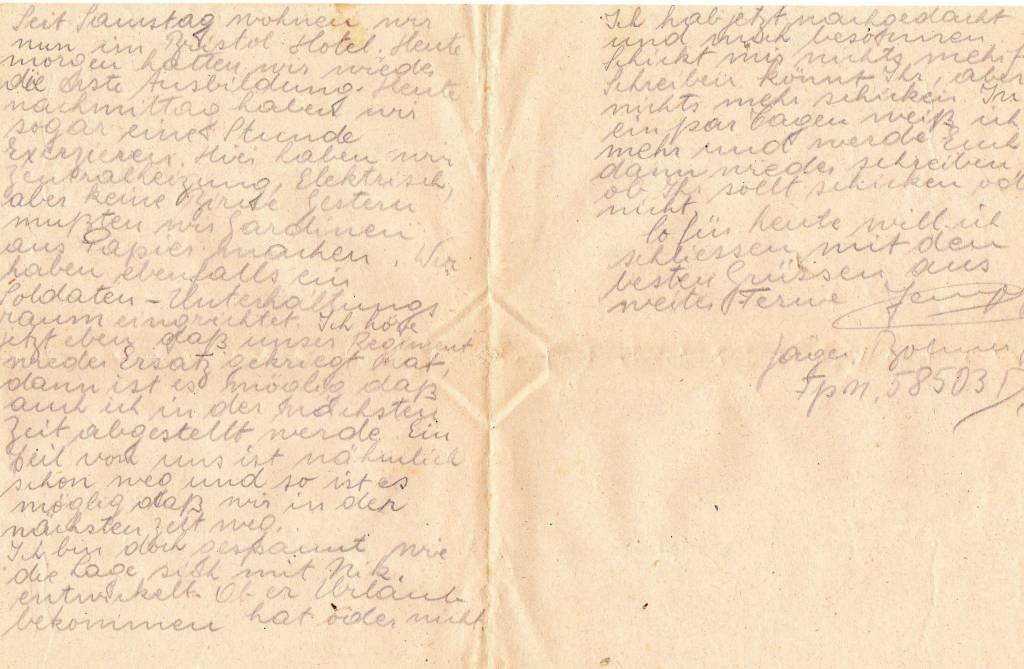 Seit Samstag wohnen wir
nun im Bristol Hotel. Heute
morgen hatten wir wieder
die erste Ausbildung. Heute
nachmittag haben wir
sogar eine Stunde
Exerzieren. Hier haben wir
Zentralheizung, Elektrisch,
aber keine Gestern
mußten wir Gardinen
aus Papier machen. Wir
haben ebenfalls ein
Soldaten-Unterhaltungs
raum eingrichtet. Ich höre
jetzt eben daß unser Regiment
wieder Ersatz gekriegt hat
dann ist es möglig daß
auch ich in der nächsten
Zeit abgestellt werde. Ein
Teil von uns ist nähmlich
schon weg und so ist es
möglig daß wir in der
nächsten Zeit weg.
Ich bin doch gespannt wie
die Lage sich mit Nik.
entwickelt. Ob er Urlaub
bekommen hat oder nicht
Ich hab jetzt nachgedacht
und mich besonnen
schickt mir nichts mehr
Schreiben könnt Ihr, aber
nichts mehr schicken. In
ein par Tagen weiß ich
mehr und werde Euch
dann wieder schreiben
ob Ihr sollt schicken od
nicht.
So für heute will ich
schliessen mit den
besten Grüssen aus
weiter Ferne
Jäger
Fpn. 58503 D